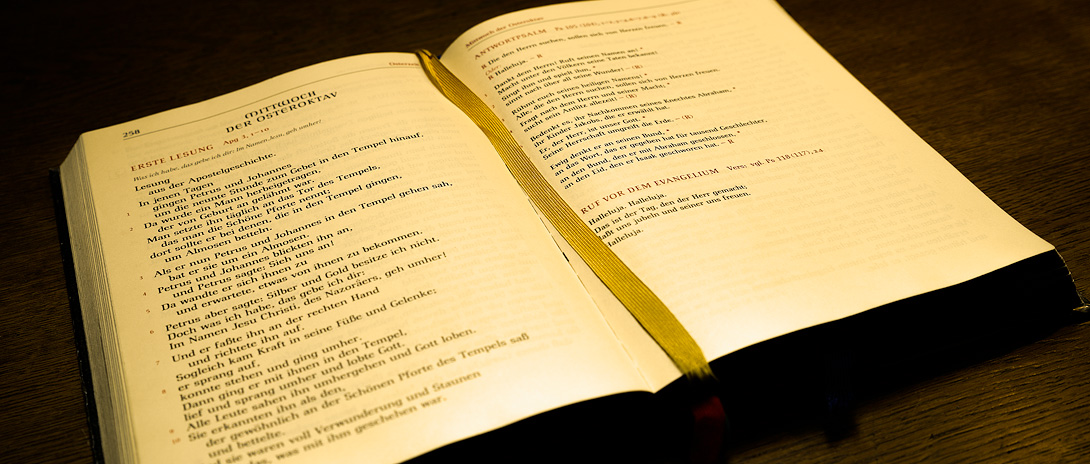 258
MITTWOCH
DER OSTEROKTAV
ERSTE LESUNG Apg 3, 1-10
Was ich habe, das gebe ich dir: Im Namen Jesu, geh umher!
Lesung
aus der Apostelgeschichte.
In jenen Tagen
1 gingen Petrus und Johannes
um die neunte Stunde zum Gebet in den Tempel hinauf.
2 Da wurde ein Mann herbeigetragen,
der von Geburt an gelähmt war.
Man setzte ihn täglich an das Tor des Tempels,
das man die Schöne Pforte nennt;
dort sollte er bei denen, die in den Tempel gingen,
um Almosen betteln.
3 Als er nun Petrus und Johannes in den Tempel gehen sah,
bat er sie um ein Almosen.
4 Petrus und Johannes blickten ihn an,
und Petrus sagte: Sieh uns an!
5 Da wandte er sich ihnen zu
und erwartete, etwas von ihnen zu bekommen.
6 Petrus aber sagte: Silber und Gold besitze ich nicht.
Doch was ich habe, das gebe ich dir:
Im Namen Jesu Christi, des Nazoräers, geh umher!
7 Und er faßte ihn an der rechten Hand
und richtete ihn auf.
Sogleich kam Kraft in seine Füße und Gelenke;
8 er sprang auf,
konnte stehen und ging umher.
Dann ging er mit ihnen in den Tempel,
lief und sprang umher und lobte Gott.
9 Alle Leute sahen ihn umhergehen und Gott loben.
10 Sie erkannten ihn als den,
der gewöhnlich an der Schönen Pforte des Tempels saß
und bettelte.
sie waren voll Verwunderung und Staunen
was mit ihm geschehen war.
Mittwoch der Osteroktav
ANTWORTPSALM Ps 105
R Die den Herrn suchen, sollen sich von Herzen freuen. – R
Oder:
R Halleluja. – R
Dankt dem Herrn! Ruft seinen Namen an! *
Macht unter den Völkern seine Taten bekannt!
Singt ihm und spielt ihm, *
sinnt nach über all seine Wunder! – (R)
Rühmt euch seines heiligen Namens! *
Alle, die den Herrn suchen, sollen sich von Herzen freuen.
Fragt nach dem Herrn und seiner Macht; *
sucht sein Antlitz allezeit! – (R)
Bedenkt es, ihr Nachkommen seines Knechtes Abraham, *
ihr Kinder Jakobs, die er erwählt hat.
Er, der Herr, ist unser Gott. *
Seine Herrschaft umgreift die Erde. – (R)
Ewig denkt er an seinen Bund, *
an das Wort, das er gegeben hat für tausend Geschlechter,
an den Bund, den er mit Abraham geschlossen, *
an den Eid, den er Isaak geschworen hat. – R
RUF VOR DEM EVANGELIUM Vers: vgl. Ps 118 (117), 24
Halleluja. Halleluja.
Das ist der Tag, den der Herr gemacht;
laßt uns jubeln und seiner uns freuen.
Halleluja.